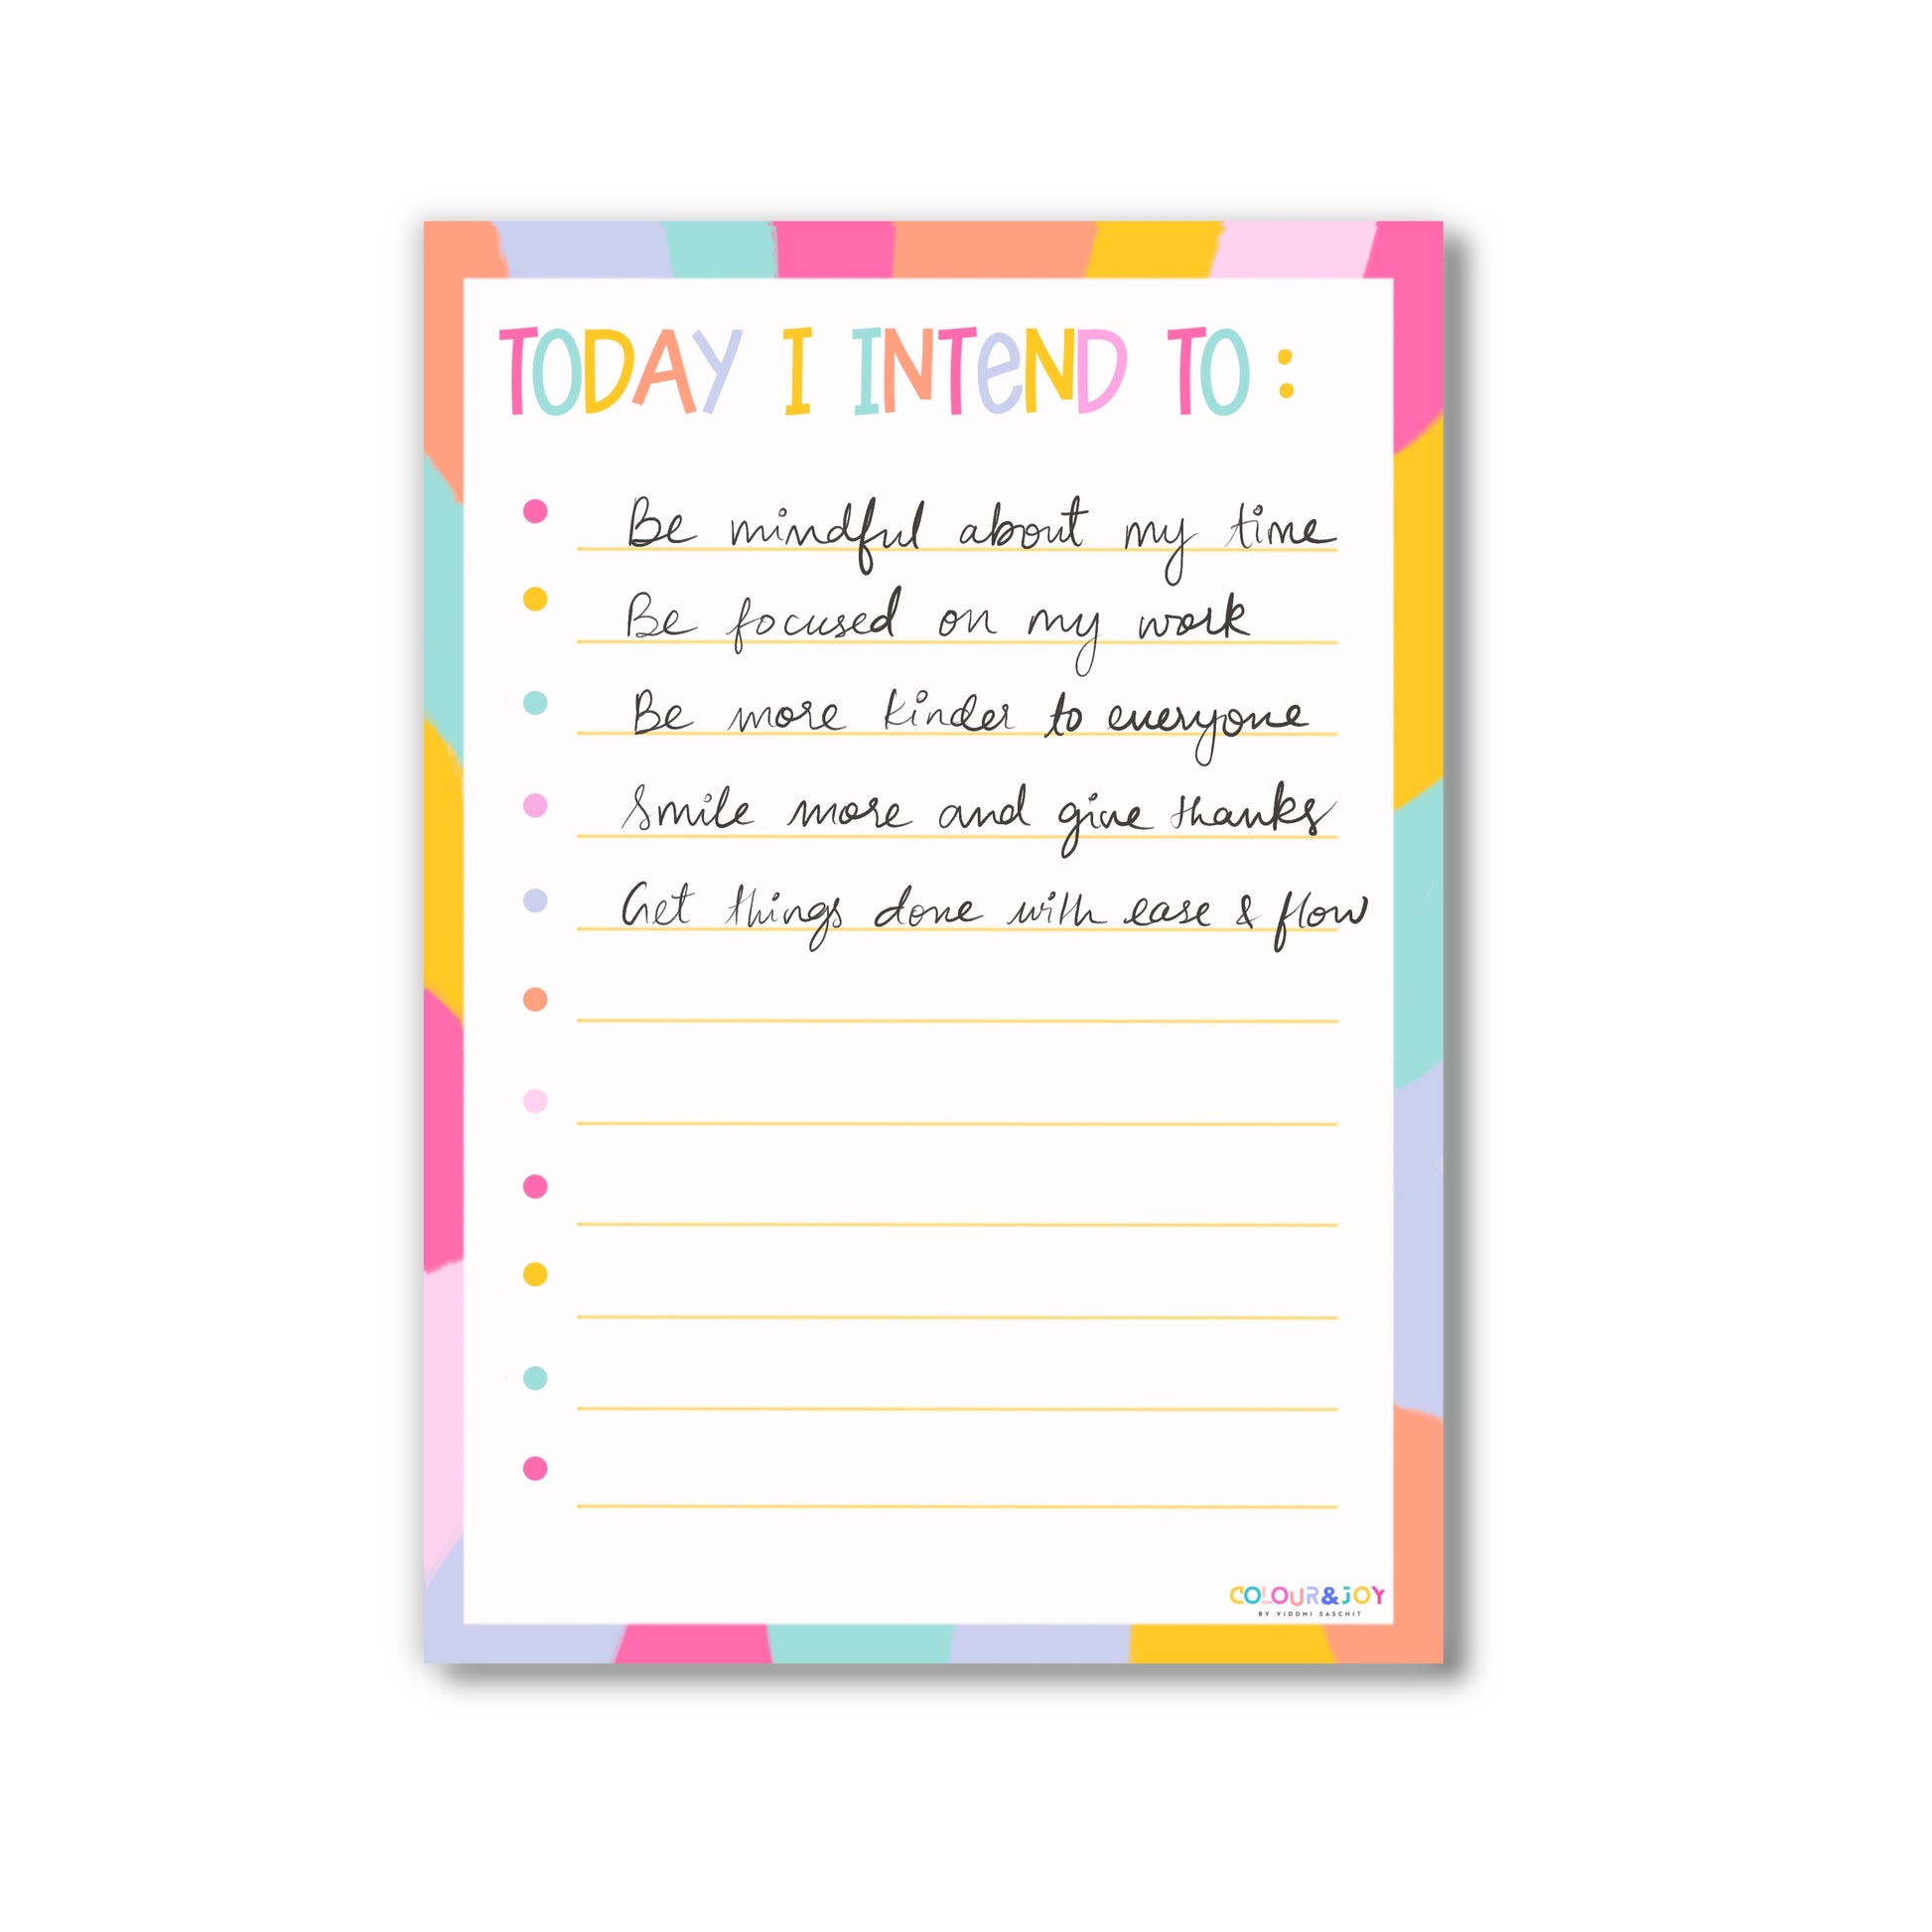 TODAY I INTeND TO :
Be mindful about my time
Be focused on my work
Be more kinder to everyone
Smile more and give thanks
Get things done with ease & flow
COLOUR&JOY
BY VIDDHI SASCHIT